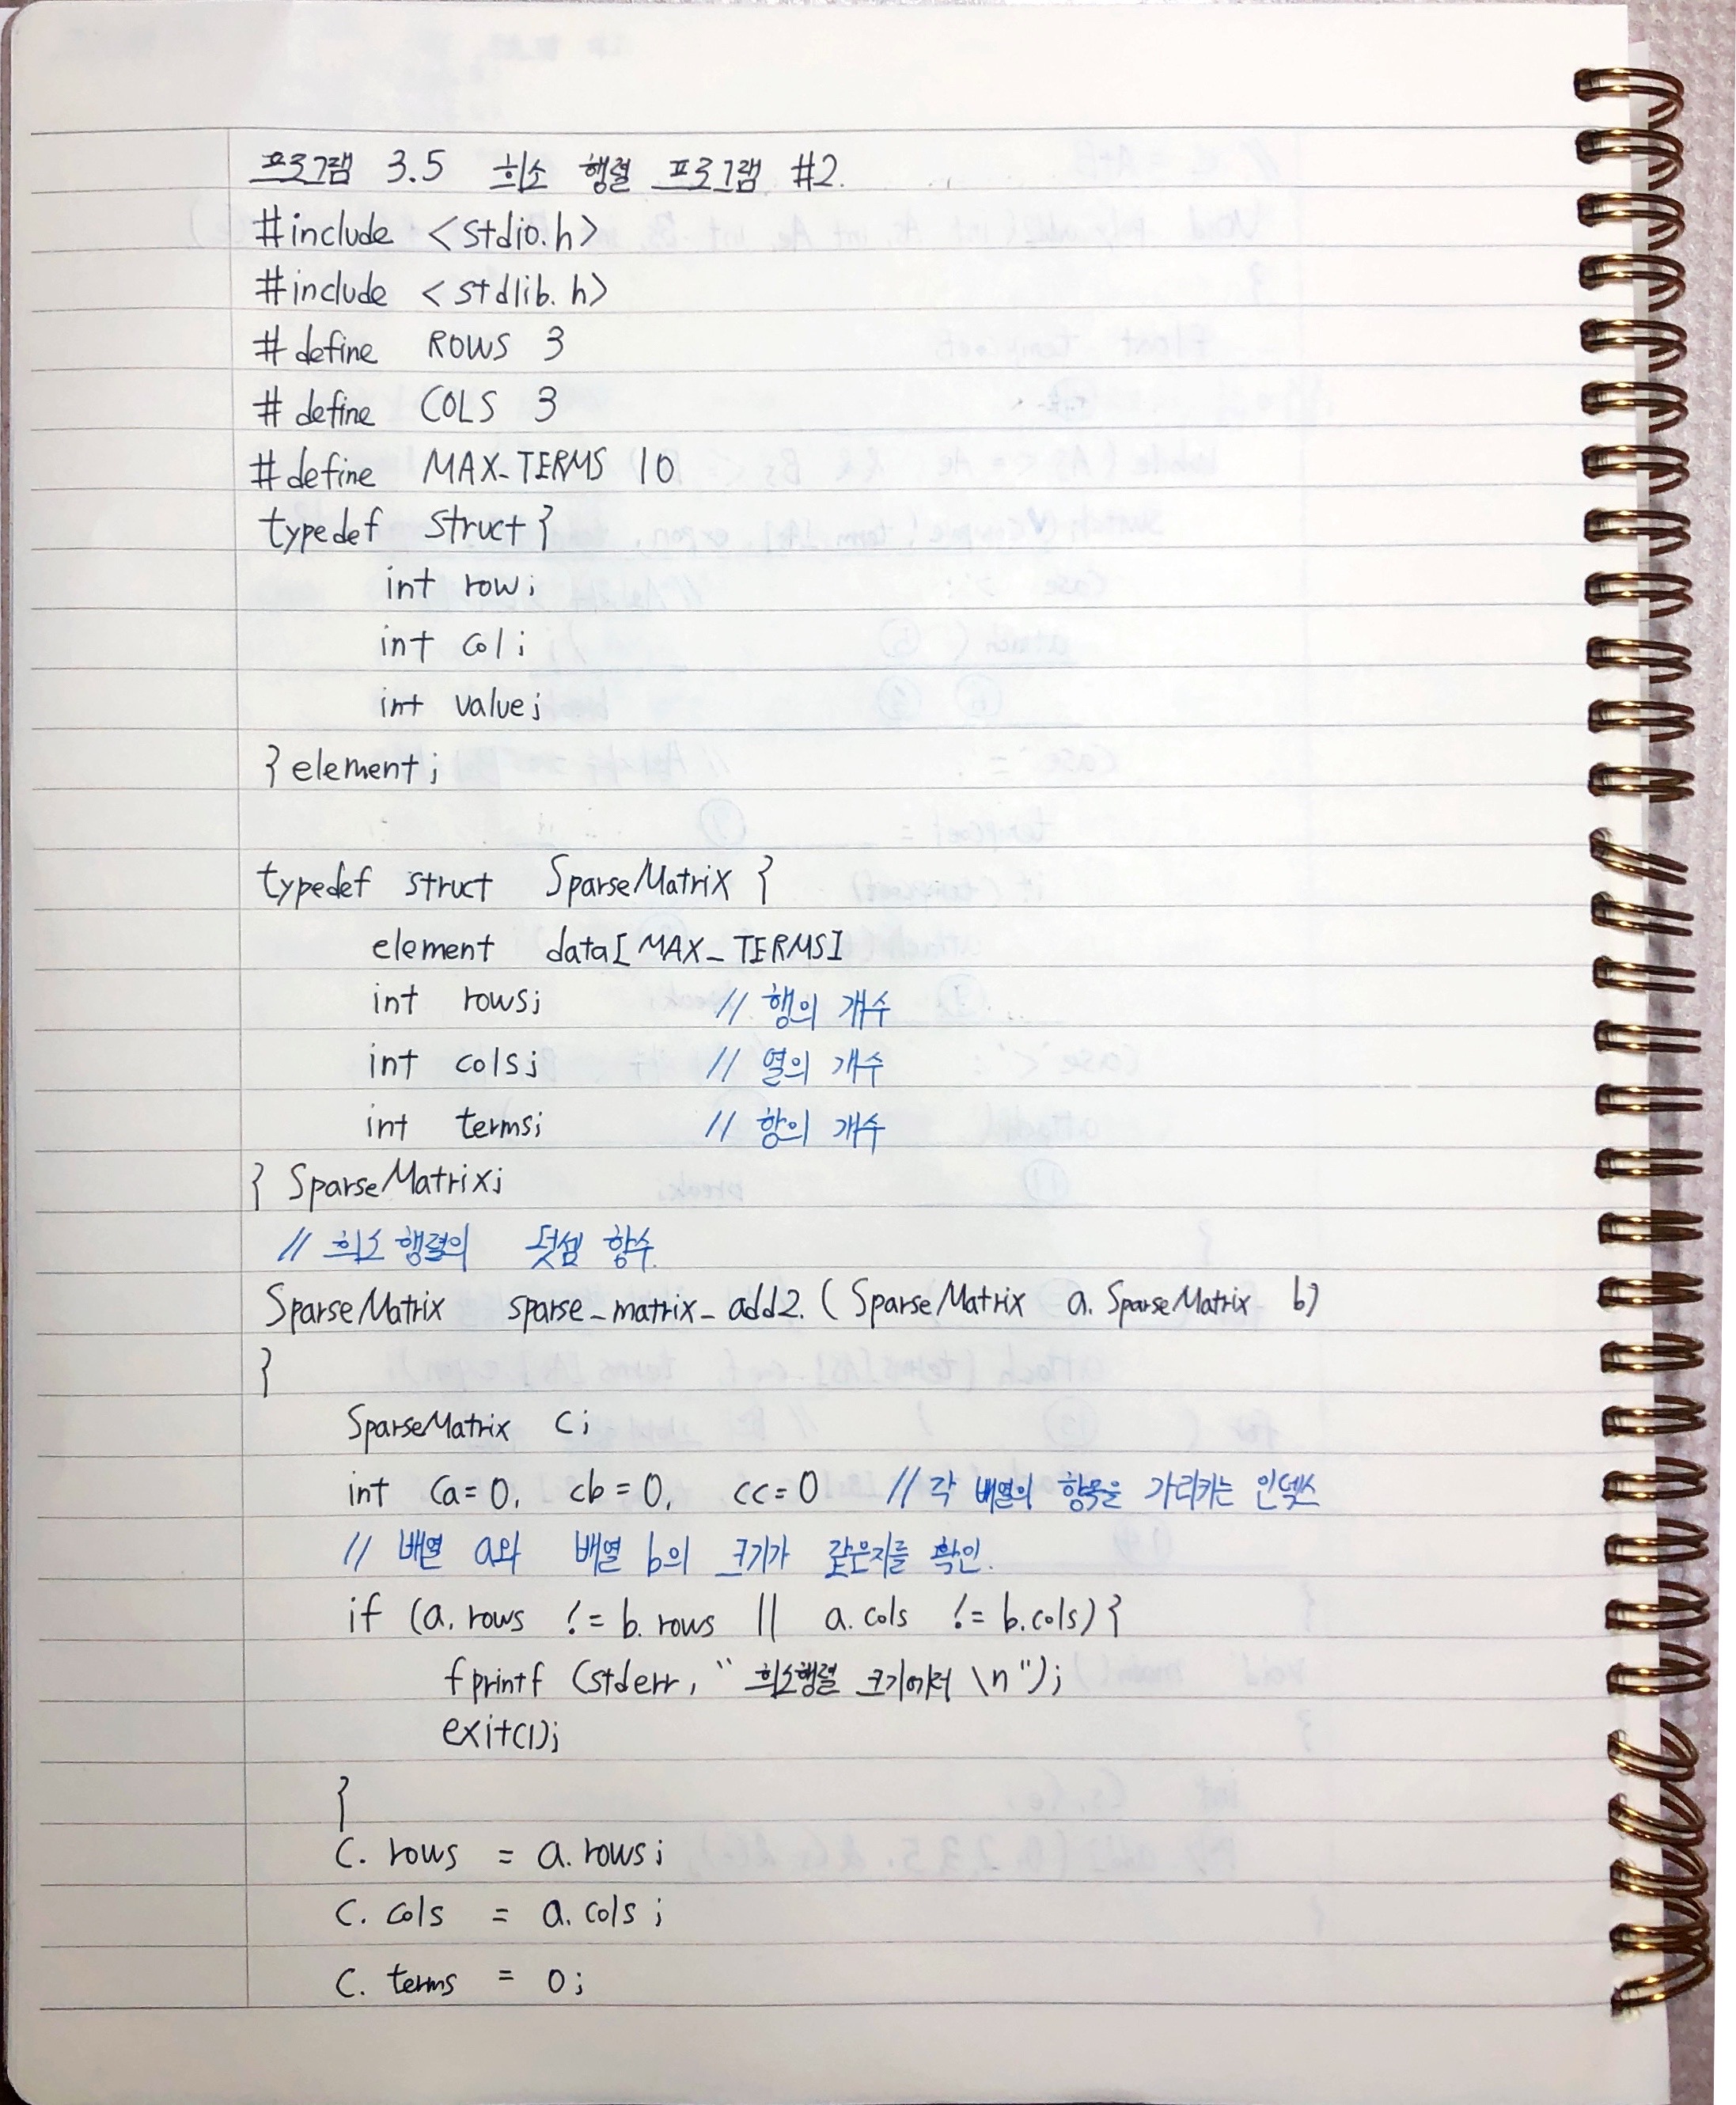 프로그램 3.5 희소 행렬 프로그램 #2.
#include <stdio.h>
#include <stdlib.h>
# define ROWS 3
# define COLS 3
# define MAX_TERMS 10
typedef struct }
int row;
int col;
int value;
} element;
typedef struct SparseMatrix }
element data[MAX_TERMS]
int rows; // 행의 개수
int cols; // 열의 개수
int terms; // 항의 개수
} SparseMatrix;
// 희소 행렬의 덧셈 함수.
SparseMatrix sparse_matrix_add2. (SparseMatrix a. SparseMatrix b)
}
SparseMatrix c;
int ca=0, cb=0, cc=0 // 각 배열의 항목을 가리키는 인덱스
// 배열 a와 배열 b의 크기가 같은지를 확인.
if (a.rows != b.rows || a.cols != b.cols) }
fprintf (stderr, " 희소행렬 크기에러 \n");
exit(1);
}
C. rows = a.rows;
C. cols = a.cols;
C. terms = 0;